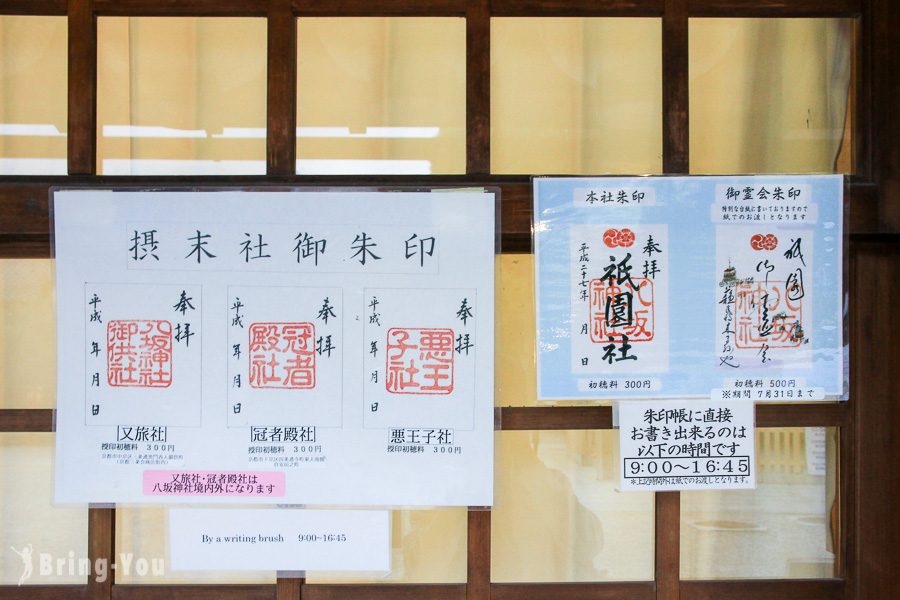 摂末社御朱印
奉拝
八坂神社
御供社
平成 年 月 日
又旅社
授印初穂料 300円
奉拝
冠者
殿社
平成 年 月 日
冠者殿社
授印初穂料 300円
奉拝
悪王
子社
平成 年 月 日
悪王子社
授印初穂料 300円
又旅社・冠者殿社は
八坂神社境内外になります
By a writing brush 9:00~16:45
本社朱印
奉拝
祇園社
八坂
神社
平成二十七年 月 日
初穂料 300円
御霊会朱印
特別な台紙に書いておりますので
紙でのお渡しとなります
祇園
八坂
神社
初穂料 500円
※期間 7月31日まで
朱印帳に直接
お書き出来るのは
以下の時間です
9:00~16:45
※上記時間外は紙でのお渡しとなります。
Bring-You